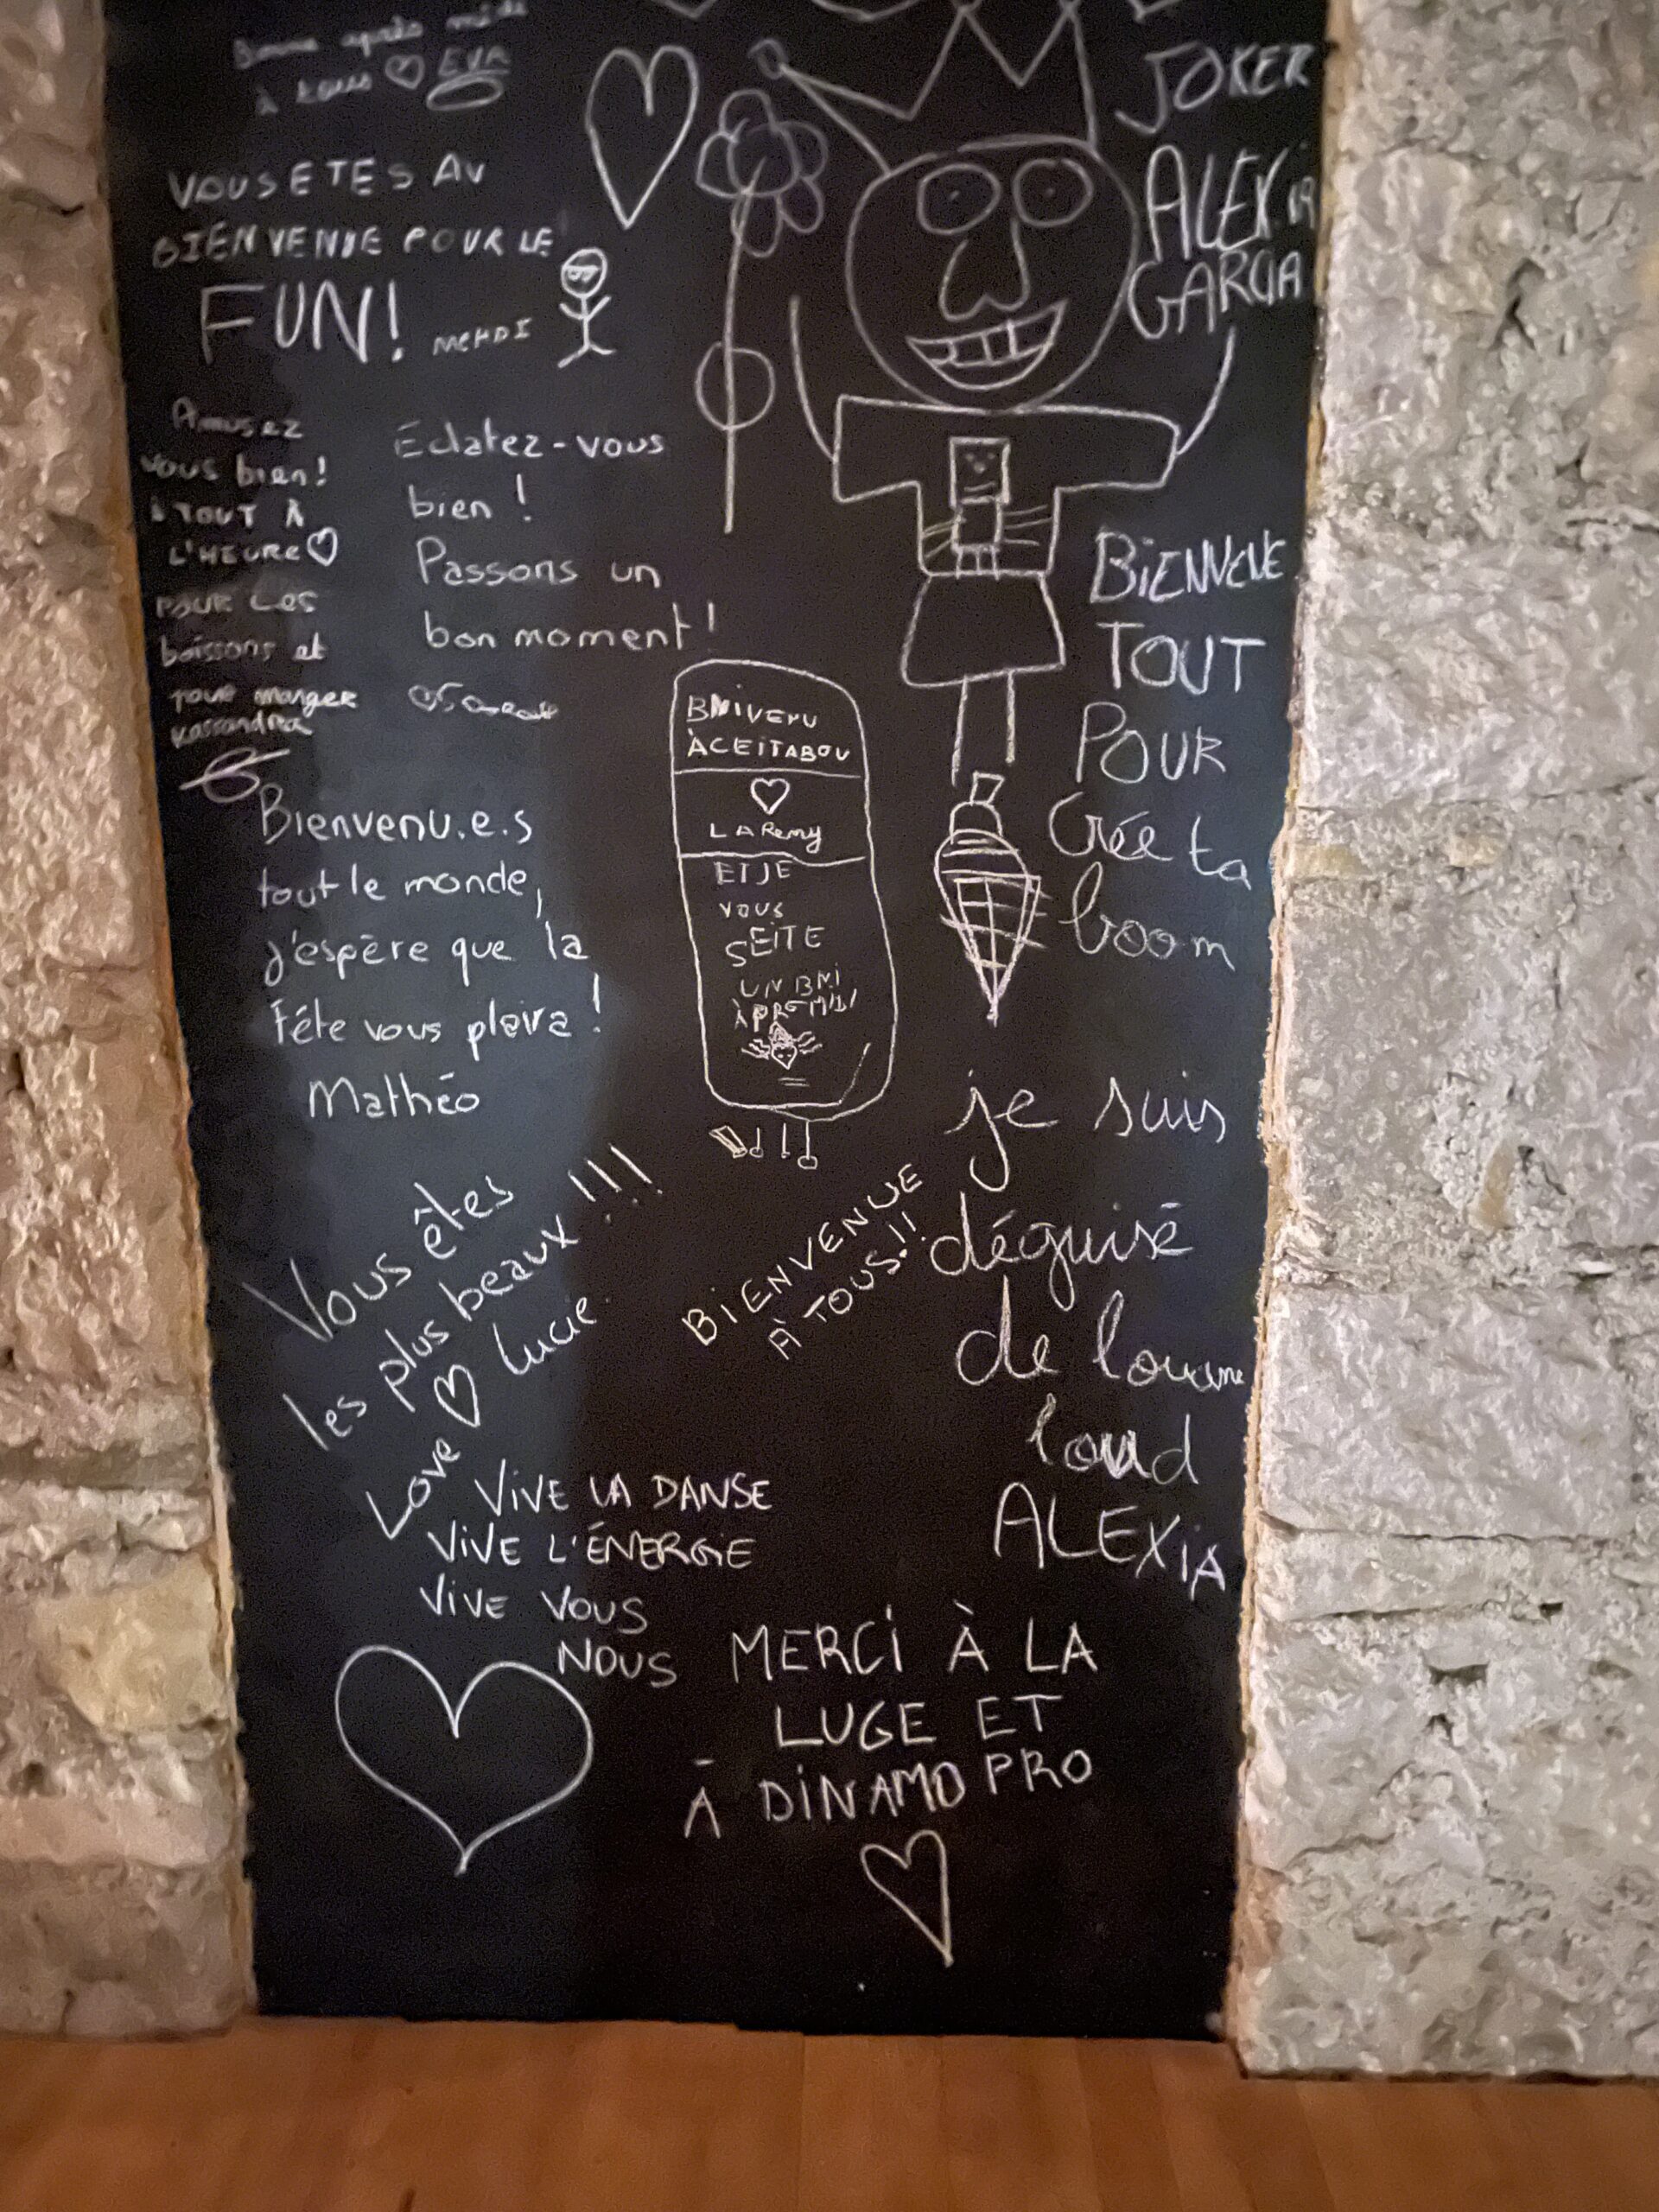 Bonne après midi
à tous ♡ EVA
VOUS ETES AU
BIENVENUE POUR LE
FUN! MEHDI
Amusez
vous bien!
à TOUT À
L'HEURE ♡
POUR Les
boissons et
pour manger
Kassandra
Éclatez-vous
bien !
Passons un
bon moment !
Bienvenu.e.s
tout le monde,
j'espère que la
fête vous plaira !
Mathéo
BNIVENU
ÀCEITABOU
♡
LA Remy
ET JE
VOUS
SEITE
UN BNI
JOKER
ALEXiA
GARCIA
BiENVEUE
TOUT
POUR
Crée ta
boom
je suis
déguisé
de louane
loud
ALEXiA
Vous êtes
les plus beaux !!!
Love ♡ Lucie
BIENVENUE
À TOUS!!
ViVE LA DANSE
ViVE L'ÉNERGiE
ViVE VOUS
NOUS
MERCi À LA
LUGE ET
À DiNAMO PRO